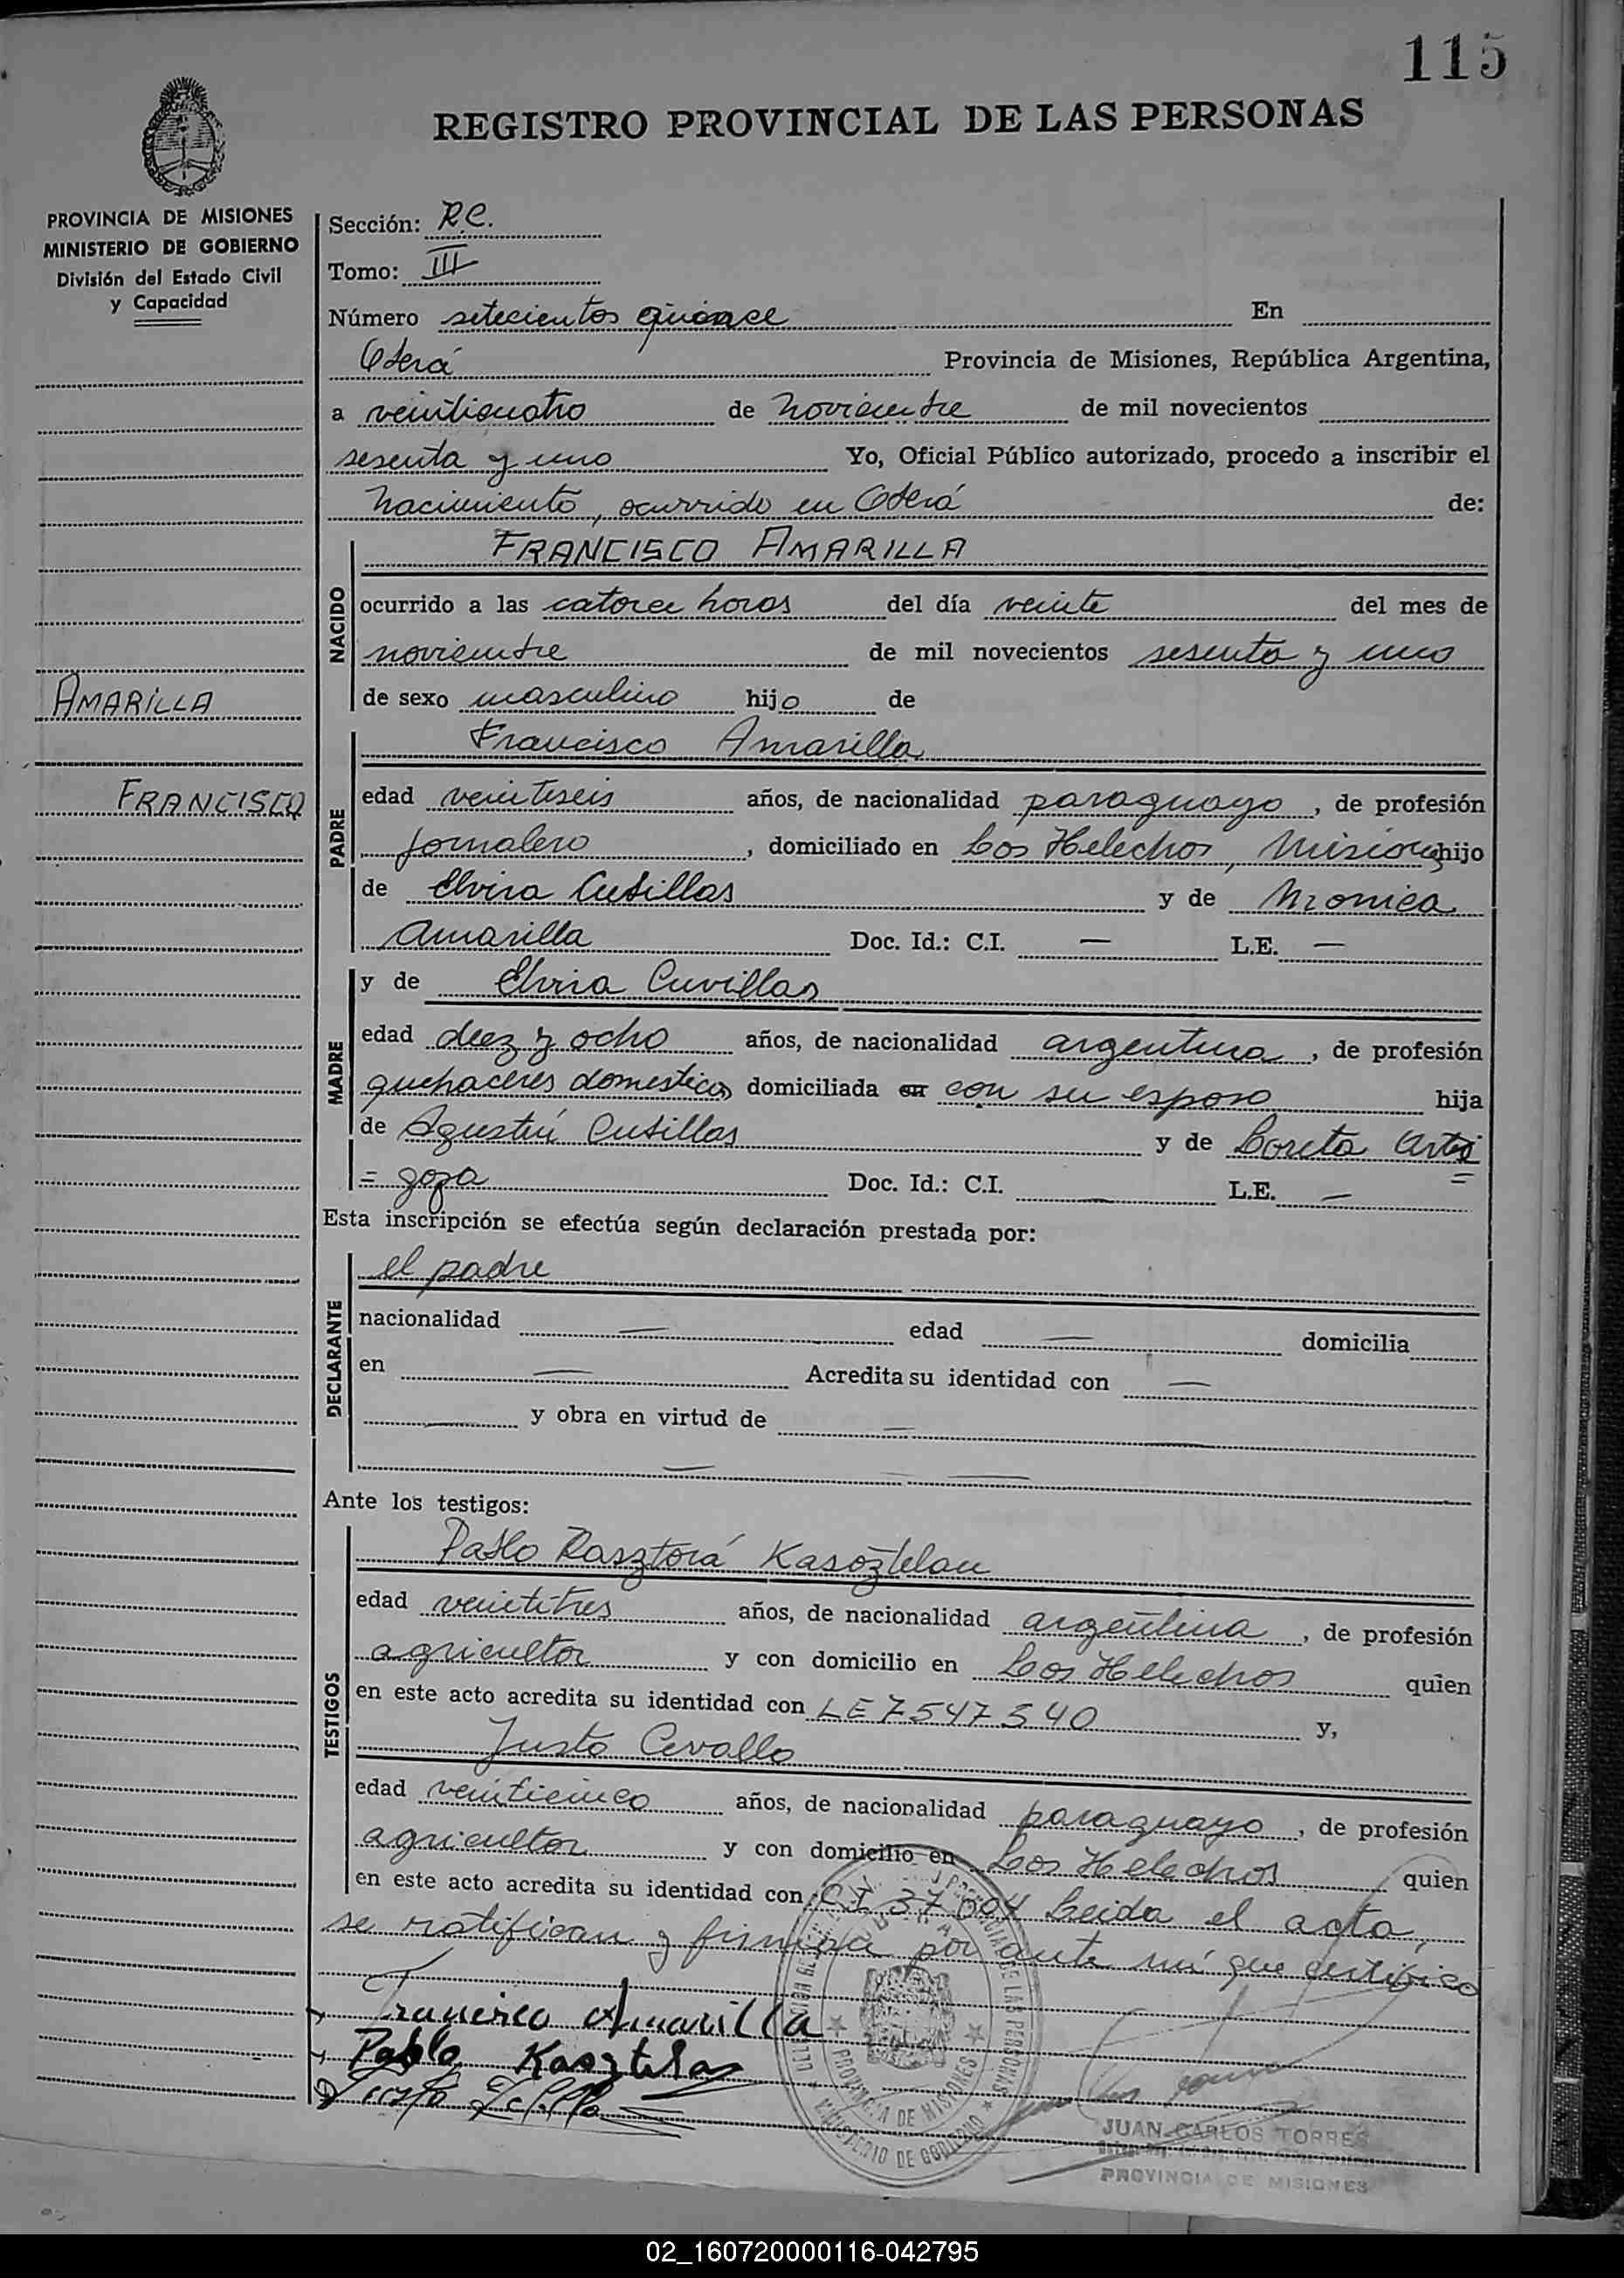 115
REGISTRO PROVINCIAL DE LAS PERSONAS
PROVINCIA DE MISIONES
MINISTERIO DE GOBIERNO
División del Estado Civil
y Capacidad
AMARILLA
FRANCISCO
Sección: R.C.
Tomo: III
Número setecientos quince En
Oberá Provincia de Misiones, República Argentina,
a veinticuatro de noviembre de mil novecientos
sesenta y uno Yo, Oficial Público autorizado, procedo a inscribir el
nacimiento, ocurrido en Oberá de:
NACIDO
FRANCISCO AMARILLA
ocurrido a las catorce horas del día veinte del mes de
noviembre de mil novecientos sesenta y uno
de sexo masculino hijo de
PADRE
Francisco Amarilla
edad veintiseis años, de nacionalidad paraguayo, de profesión
jornalero, domiciliado en Los Helechos, Misiones hijo
de Elvira Cubillas y de Monica
Amarilla Doc. Id.: C.I. — L.E. —
MADRE
y de Elviria Cuvillas
edad diez y ocho años, de nacionalidad argentina, de profesión
quehaceres domesticos domiciliada en con su esposo hija
de Agustin Cubillas y de Loreta Arti
= goza Doc. Id.: C.I. — L.E. —
Esta inscripción se efectúa según declaración prestada por:
DECLARANTE
el padre
nacionalidad — edad — domicilia
en — Acredita su identidad con —
— y obra en virtud de —
Ante los testigos:
TESTIGOS
Pablo Kasoztelan
edad veintitres años, de nacionalidad argentina, de profesión
agricultor y con domicilio en Los Helechos quien
en este acto acredita su identidad con LE 7547540 y,
Justo Cevallo
edad veinticinco años, de nacionalidad paraguayo, de profesión
agricultor y con domicilio en Los Helechos quien
en este acto acredita su identidad con CI Leida el acta,
se ratifican y firman por ante mí que certifico
Francisco Amarilla
Pablo Kasztelan
Justo
PROVINCIA DE MISIONES
MINISTERIO DE GOBIERNO
JUAN CARLOS TORRES
PROVINCIA DE MISIONES
02_160720000116-042795